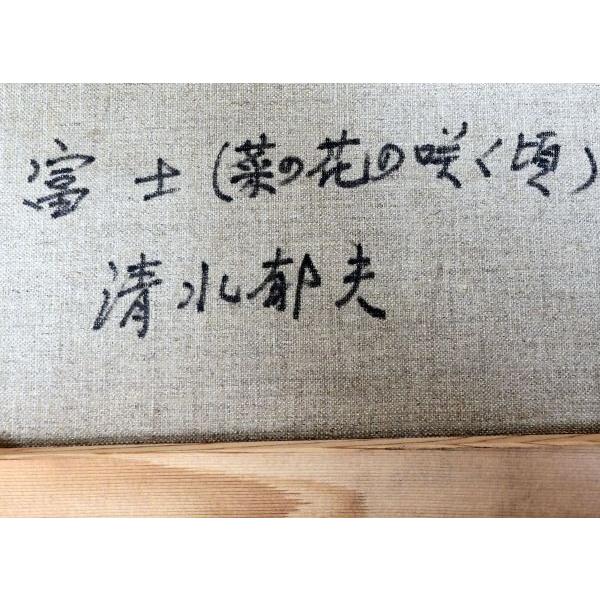 富士(菜の花の咲く頃)
清水郁夫